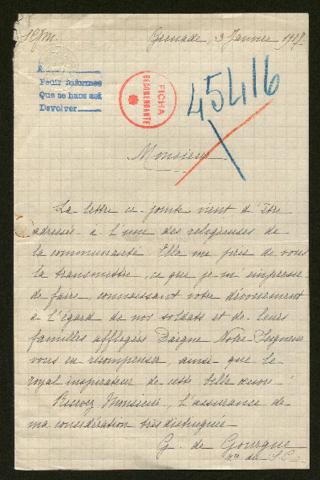 Grenade, 3 Janvier 1917.
Pedir informes
Que se hace acá
Devolver
FICHA
45416
Monsieur
La lettre ci-jointe vient d'être
adressée à l'une des religieuses de
la communauté. Elle me prie de vous
la transmettre, ce que je m'empresse
de faire, connaissant votre dévouement
à l'égard de nos soldats et de leurs
familles affligées. Daigne Notre-Seigneur
vous en récompenser, ainsi que le
royal inspirateur de cette belle œuvre!
Recevez Monsieur, l'assurance de
ma considération très distinguée
G. de Gourgue